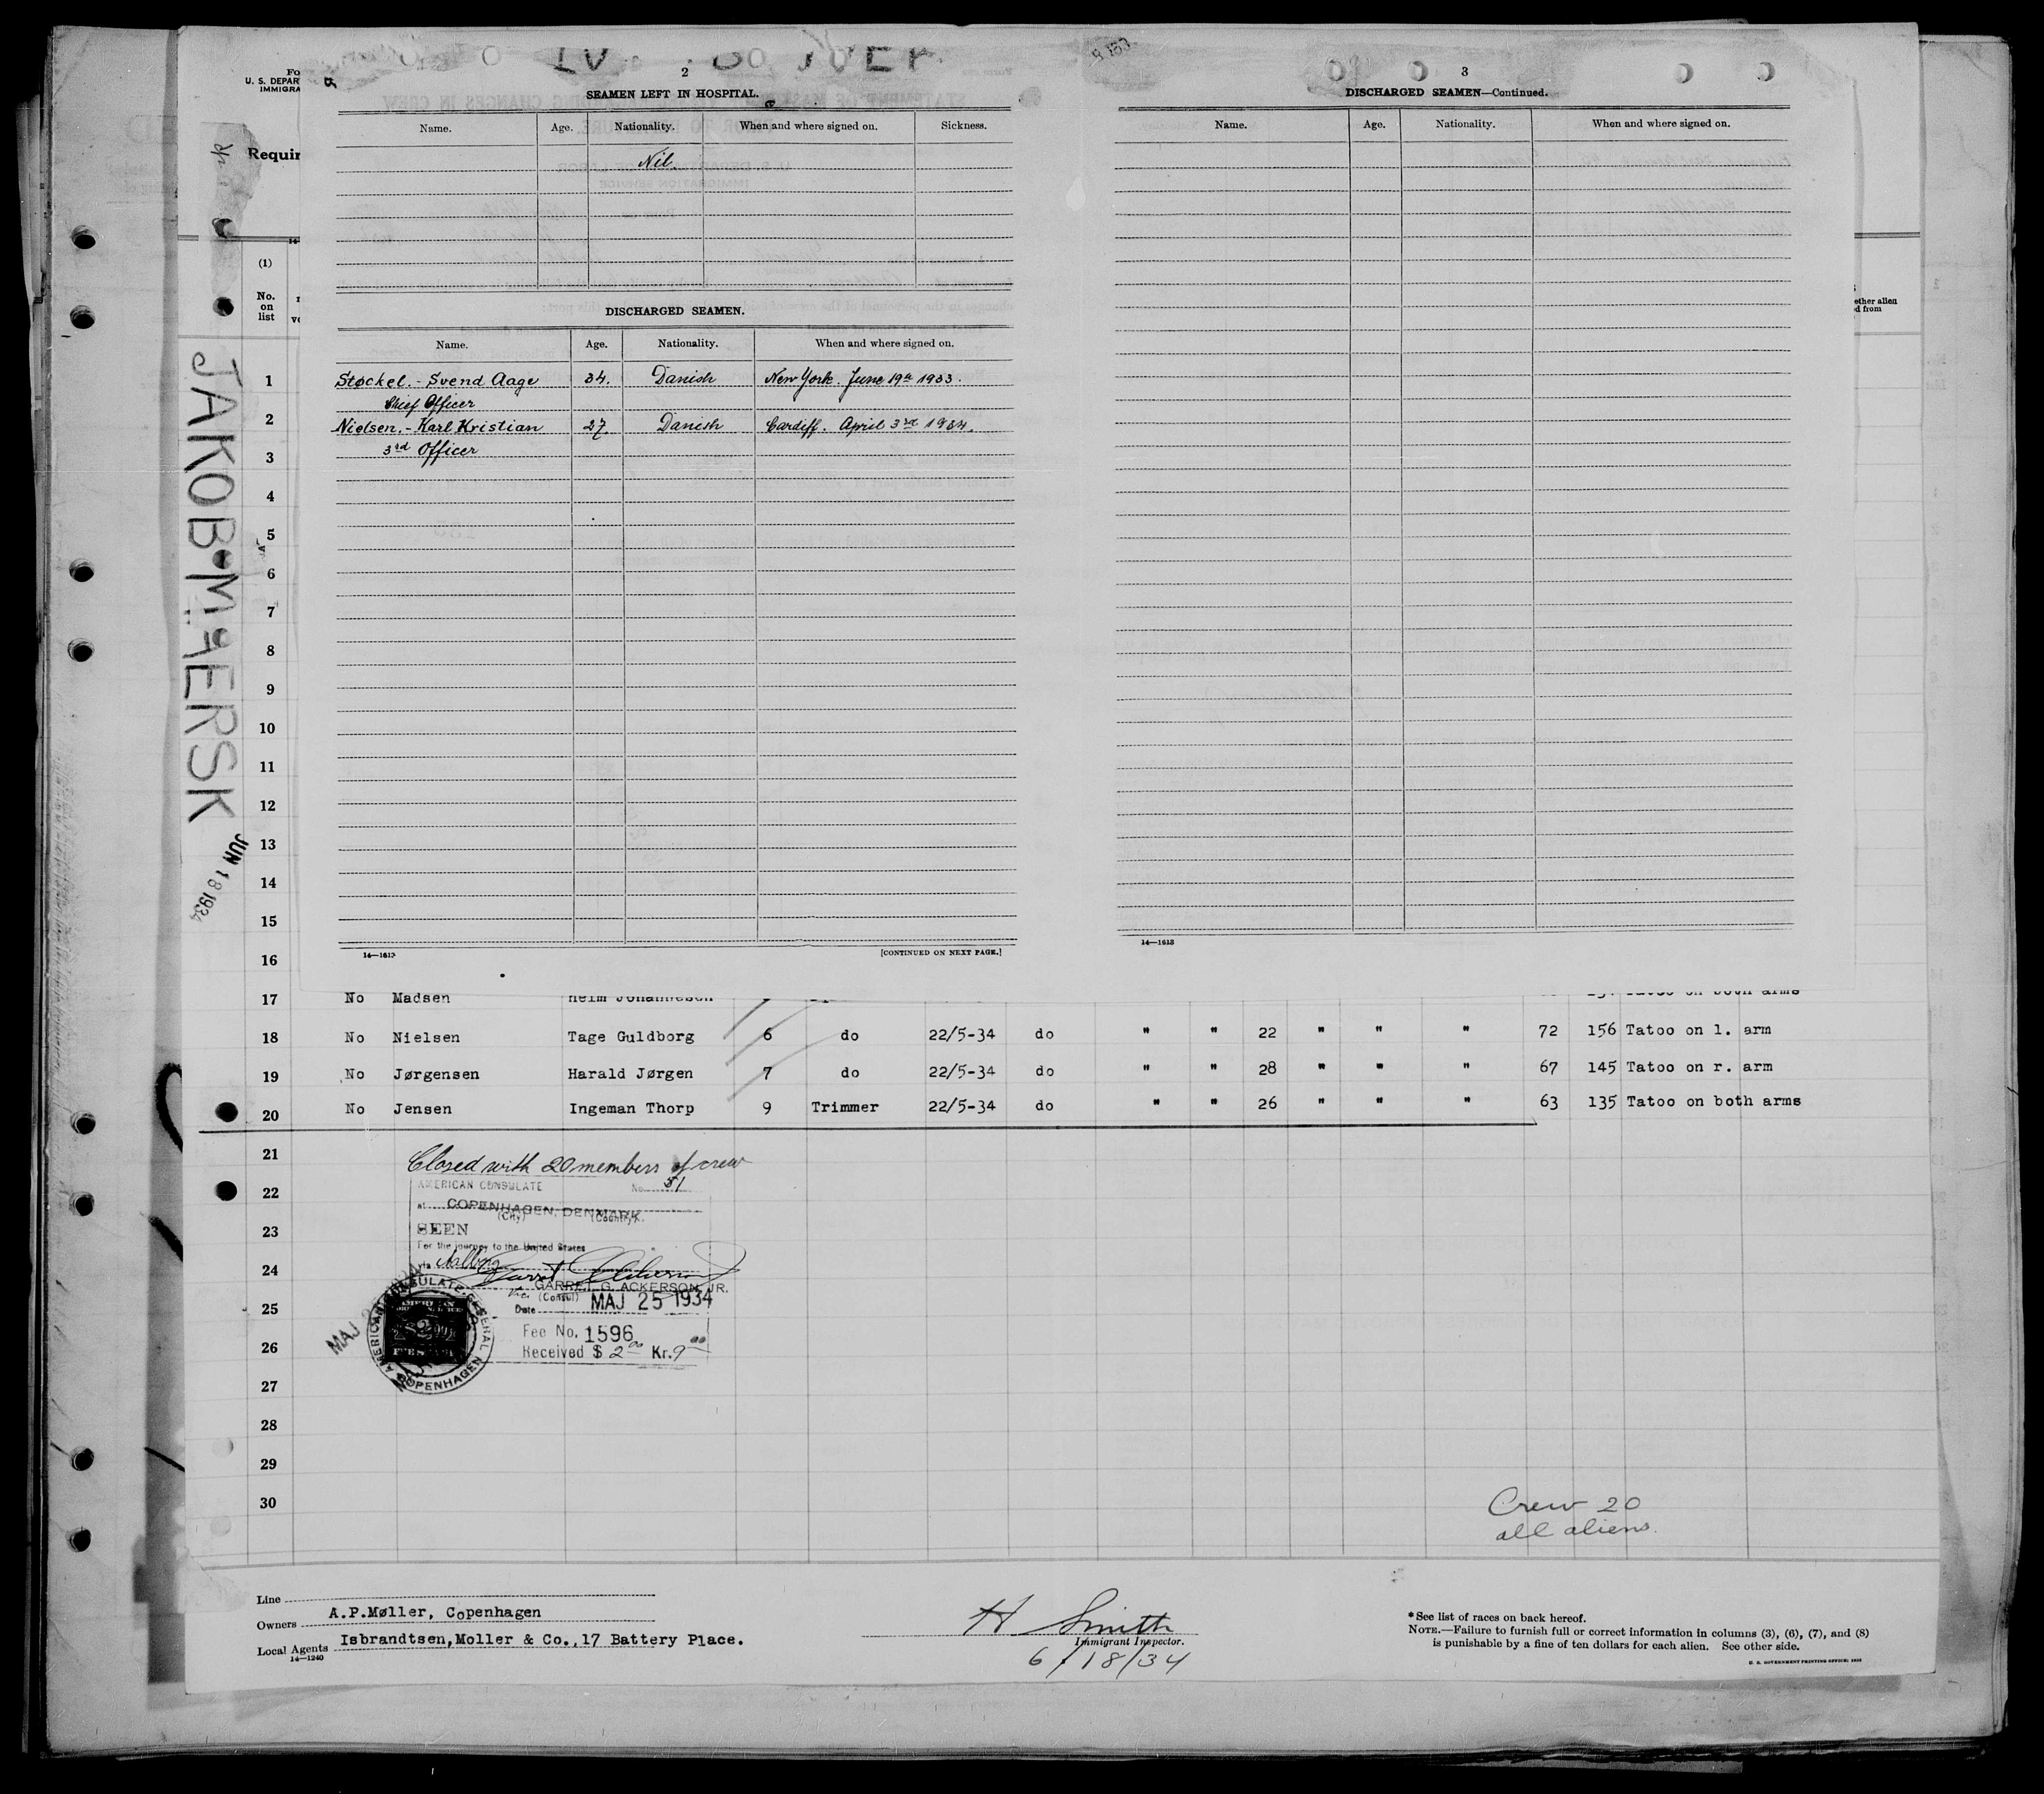 2
SEAMEN LEFT IN HOSPITAL.
Name. Age. Nationality. When and where signed on. Sickness.
Nil.
DISCHARGED SEAMEN.
Name. Age. Nationality. When and where signed on.
Støckel.- Svend Aage 34. Danish New York. June 19th 1933.
Chief Officer
Nielsen.- Karl Kristian 27. Danish Cardiff. April 3rd 1934.
3rd Officer
14—1613
[CONTINUED ON NEXT PAGE.]
3
DISCHARGED SEAMEN—Continued.
Name. Age. Nationality. When and where signed on.
14—1613
U. S. DEPAR
IMMIGRA
Requir
(1)
No. on list
ether alien
d from
JAKOB MAERSK
JUN 18 1934
1
2
3
4
5
6
7
8
9
10
11
12
13
14
15
16
17 No Madsen Helm Johannesen both arms
18 No Nielsen Tage Guldborg 6 do 22/5-34 do " " 22 " " " 72 156 Tatoo on l. arm
19 No Jørgensen Harald Jørgen 7 do 22/5-34 do " " 28 " " " 67 145 Tatoo on r. arm
20 No Jensen Ingeman Thorp 9 Trimmer 22/5-34 do " " 26 " " " 63 135 Tatoo on both arms
21
22
23
24
25
26
27
28
29
30
Closed with 20 members of crew
AMERICAN CONSULATE No. 51
at COPENHAGEN, DENMARK.
(City) (Country)
SEEN
For the journey to the United States
via Aalborg
GARRET G. ACKERSON, JR.
Vice (Consul)
Date MAJ 25 1934
Fee No. 1596
Received $ 2.00 Kr. 9.00
AMERICAN CONSULATE GENERAL
COPENHAGEN
MAJ 2
Crew 20
all aliens.
Line
Owners A.P.Møller, Copenhagen
Local Agents Isbrandtsen, Moller & Co., 17 Battery Place.
14—1240
H Smith
Immigrant Inspector.
6/18/34
*See list of races on back hereof.
NOTE.—Failure to furnish full or correct information in columns (3), (6), (7), and (8)
is punishable by a fine of ten dollars for each alien. See other side.